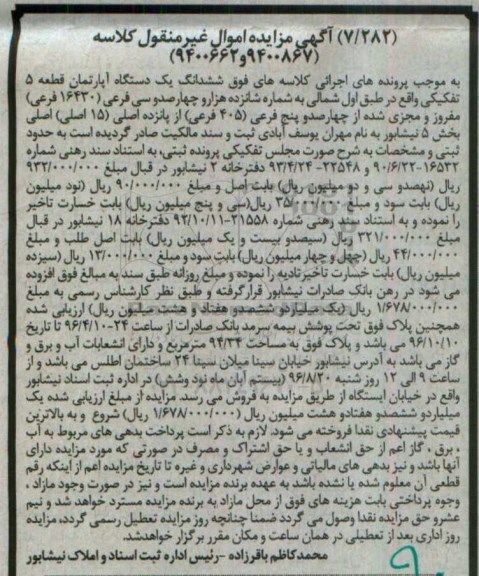 (۷/۲۸۲) آگهی مزایده اموال غیرمنقول کلاسه
(۹۴۰۰۸۶۷و۹۴۰۰۶۶۲)
به موجب پرونده های اجرائی کلاسه های فوق ششدانگ یک دستگاه آپارتمان قطعه ۵
تفکیکی واقع در طبق اول شمالی به شماره شانزده هزارو چهارصدو سی فرعی (۱۶۴۳۰ فرعی)
مفروز و مجزی شده از چهارصدو پنج فرعی (۴۰۵ فرعی) از پانزده اصلی (۱۵ اصلی) اصلی
بخش ۵ نیشابور به نام مهران یوسف آبادی ثبت و سند مالکیت صادر گردیده است به حدود
ثبتی و مشخصات به شرح صورت مجلس تفکیکی پرونده ثبتی، به استناد سند رهنی شماره
۱۶۵۳۲-۹۰/۶/۲۲ و ۲۲۵۴۸- ۹۳/۴/۲۴ دفترخانه ۲ نیشابور در قبال مبلغ ۹۳۲/۰۰۰/۰۰۰
ریال (نهصدو سی و دو میلیون ریال) بابت اصل و مبلغ ۹۰/۰۰۰/۰۰۰ ریال (نود میلیون
ریال) بابت سود و مبلغ ۳۵/۰۰۰/۰۰۰ ریال(سی و پنج میلیون ریال) بابت خسارت تاخیر
را نموده و به استناد سند رهنی شماره ۲۱۵۵۸-۹۲/۱۰/۱۱ دفترخانه ۱۸ نیشابور در قبال
مبلغ ۳۲۱/۰۰۰/۰۰۰ ریال (سیصدو بیست و یک میلیون ریال) بابت اصل طلب و مبلغ
۴۴/۰۰۰/۰۰۰ ریال (چهل و چهار میلیون ریال) بابت سود و مبلغ ۱۳/۰۰۰/۰۰۰ ریال (سیزده
میلیون ریال) بابت خسارت تاخیرتادیه را نموده و مبلغ روزانه طبق سند به مبالغ فوق افزوده
می شود در رهن بانک صادرات نیشابور قرار گرفته و طبق نظر کارشناس رسمی به مبلغ
۱/۶۷۸/۰۰۰/۰۰۰ ریال (یک میلیاردو ششصدو هفتاد و هشت میلیون ریال) ارزیابی شده
همچنین پلاک فوق تحت پوشش بیمه سرمد بانک صادرات از ساعت ۲۴-۹۶/۴/۱۰ تا تاریخ
۹۶/۱۰/۱۰ می باشد و پلاک فوق به مساحت ۹۴/۳۴ مترمربع و دارای انشعابات آب و برق و
گاز می باشد به آدرس نیشابور خیابان سینا میلان سینا ۲۴ ساختمان اطلس می باشد و از
ساعت ۹ الی ۱۲ روز شنبه ۹۶/۸/۲۰ (بیستم آبان ماه نود وشش) در اداره ثبت اسناد نیشابور
واقع در خیابان ایستگاه از طریق مزایده به فروش می رسد. مزایده از مبلغ ارزیابی شده یک
میلیاردو ششصدو هفتادو هشت میلیون ریال (۱/۶۷۸/۰۰۰/۰۰۰ ریال) شروع و به بالاترین
قیمت پیشنهادی نقدا فروخته می شود. لازم به ذکر است پرداخت بدهی های مربوط به آب
، برق ، گاز اعم از حق انشعاب و یا حق اشتراک و مصرف در صورتی که مورد مزایده دارای
آنها باشد و نیز بدهی های مالیاتی و عوارض شهرداری و غیره تا تاریخ مزایده اعم از اینکه رقم
قطعی آن معلوم شده یا نشده باشد به عهده برنده مزایده است و نیز در صورت وجود مازاد ،
وجوه پرداختی بابت هزینه های فوق از محل مازاد به برنده مزایده مسترد خواهد شد و نیم
عشرو حق مزایده نقدا وصول می گردد ضمنا چنانچه روز مزایده تعطیل رسمی گردد، مزایده
روز اداری بعد از تعطیلی در همان ساعت و مکان مقرر برگزار خواهدشد.
محمدکاظم باقرزاده -رئیس اداره ثبت اسناد و املاک نیشابور